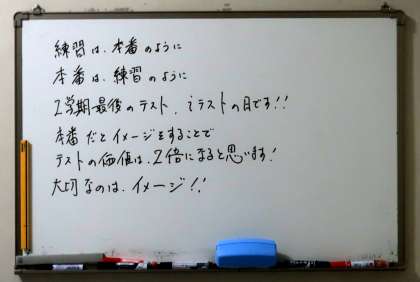 練習は、本番のように
本番は、練習のように
2学期最後のテスト、iテストの日です!!
本番だとイメージをすることで
テストの価値は、2倍になると思います!
大切なのは、イメージ!!